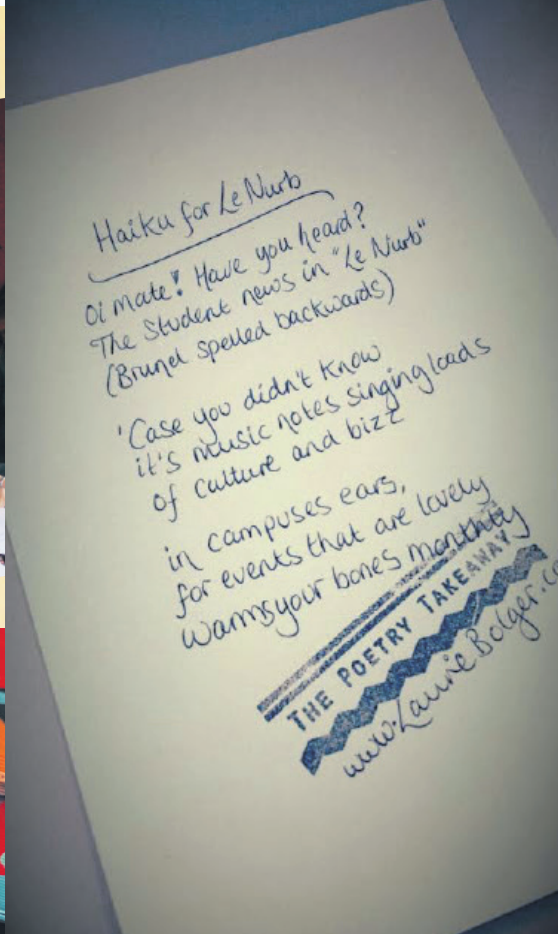 Haiku for Le Nurb
Oi mate! Have you heard?
The Student news in "Le Nurb"
(Brunel spelled backwards)
'Case you didn't know
it's music notes singing loads
of culture and bizz
in campuses ears,
for events that are lovely
warms your bones monthly
THE POETRY TAKEAWAY
www.LaurieBolger.co